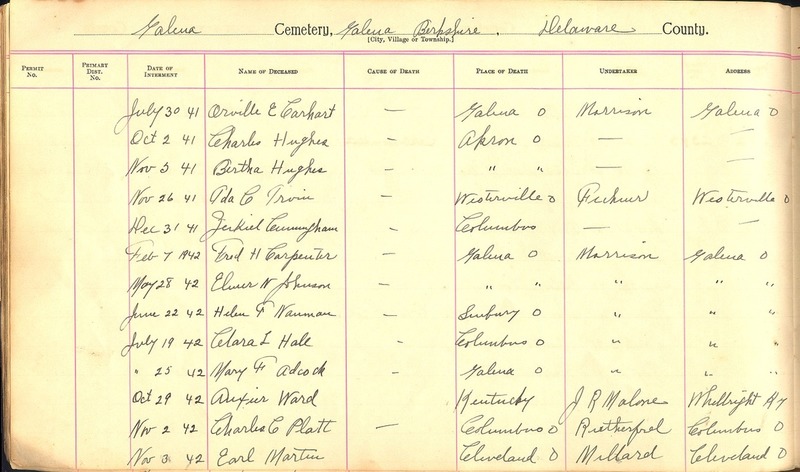 Galena Cemetery, Galena Berkshire, Delaware County.
[City, Village or Township.]
Permit No. Primary Dist. No. Date of Interment Name of Deceased Cause of Death Place of Death Undertaker Address
July 30 41 Orville E Carhart — Galena O Morrison Galena O
Oct 2 41 Charles Hughes — Akron O — —
Nov 5 41 Bertha Hughes — " " — —
Nov 26 41 Ida C — Westerville O Westerville O
Dec 31 41 Cunningham — Columbus — —
Feb 7 1942 Fred H Carpenter — Galena O Morrison Galena O
May 28 42 Elmer N Johnson — " " " " "
June 22 42 Helen F — Sunbury O " " "
July 19 42 Clara L Hall — Columbus O " " "
" 25 42 Mary F Adcock — Galena O " " "
Oct 29 42 Auxier Ward Kentucky J R Malone Ky
Nov 2 42 Charles C Platt — Columbus O Columbus O
Nov 3 42 Earl Martin Cleveland O Millard Cleveland O